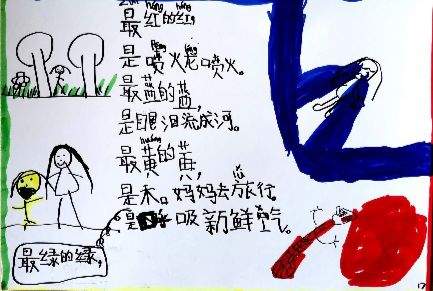 hóng hóng
最红的红，
是喷火龙喷火。
最蓝的蓝，
是眼泪流成河。
huáng
最黄的黄，
是和妈妈去旅行。
最绿的绿，
是呼吸新鲜空气。